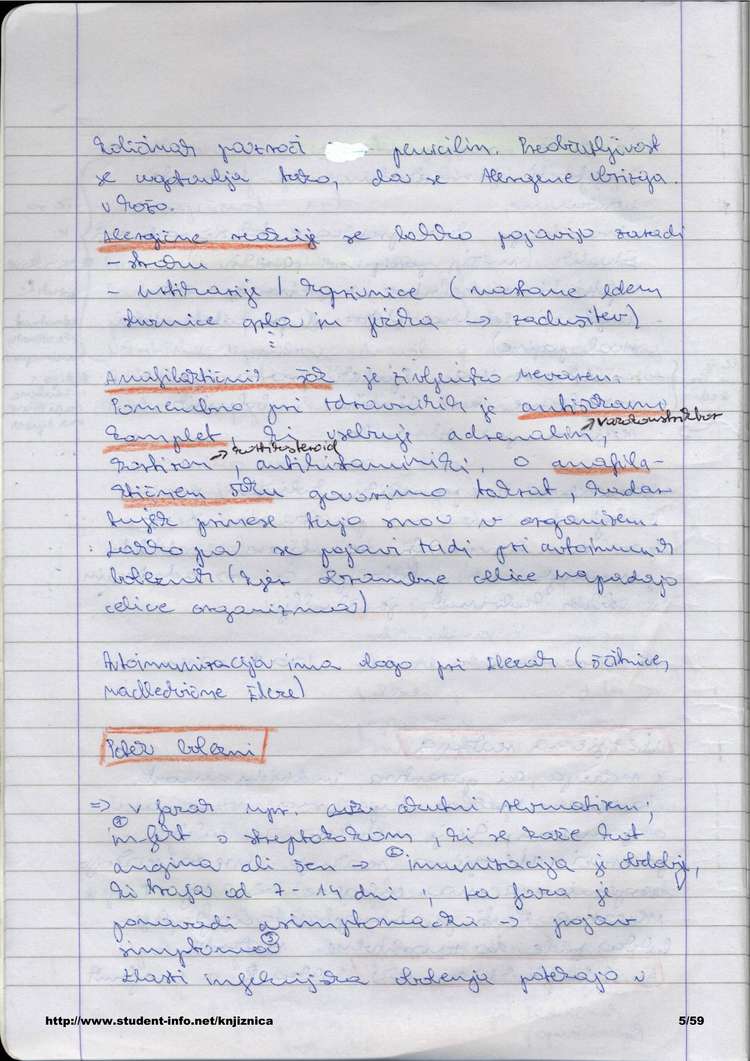 povzroči penicilin. Preobčutljivost
se ugotavlja tako, da se alergene vbrizga
v kožo.
Alergične reakcije se lahko pojavijo zaradi
- strdm
- / (nastane edem
sluznice grla in → zadušitev)
Anafilaktični šok je življenjsko nevaren.
Pomembno pri zdravnikih je antišokovni
→ vazokonstriktor
komplet, ki vsebuje adrenalin,
→ kortikosteroid
, antihistaminiki, o anafila-
ktičnem šoku govorimo takrat, kadar
tujek prinese tujo snov v organizem.
Lahko pa se pojavi tudi pri avtoimunih
boleznih (kjer obrambne celice napadajo
celice organizma)
Avtoimunizacija ima vlogo pri žlezah (ščitnice,
nadledvične žleze)
Potek bolezni
⇒ v fazah npr. akutni revmatizem;
① infekt s streptokokom, ki se kaže kot
angina ali šen → ② imunizacija je obdobje,
ki traja od 7 - 14 dni; ta faza je
ponavadi asimptomatska → ③ pojav
simptomov
Zlasti infekcijska obolenja potekajo v
http://www.student-info.net/knjiznica
5/59